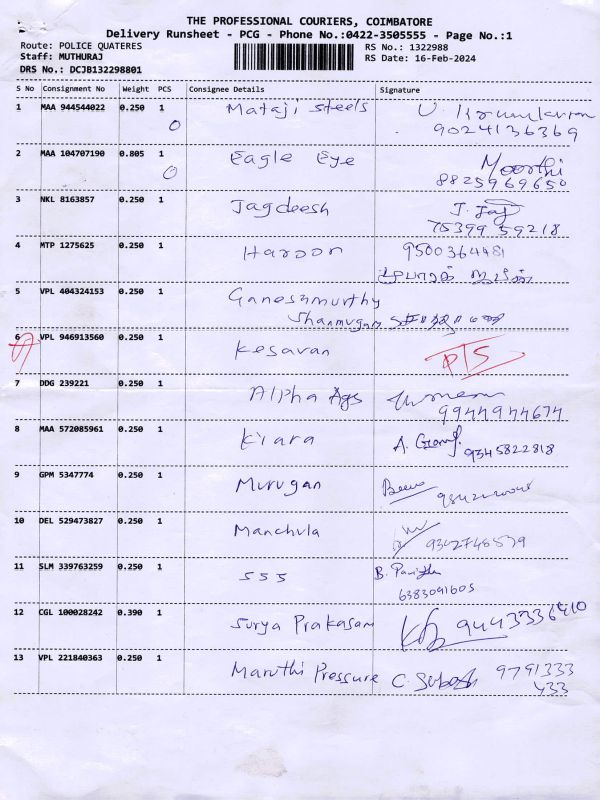 THE PROFESSIONAL COURIERS, COIMBATORE
Delivery Runsheet - PCG - Phone No.:0422-3505555 - Page No.:1
Route: POLICE QUATERES RS No.: 1322988
Staff: MUTHURAJ RS Date: 16-Feb-2024
DRS No.: DCJB132298801
S No Consignment No Weight PCS Consignee Details Signature
1 MAA 944544022 0.250 1 Mataji Steels
0 9024136369
2 MAA 104707190 0.805 1 Eagle Eye Moorthi
0 8825969650
3 NKL 8163857 0.250 1 Jagdeesh J. Jag
75399 59218
4 MTP 1275625 0.250 1 Haroon 9500364481
5 VPL 404324153 0.250 1 Ganeshmurthy
Shanmugam
6 VPL 946913560 0.250 1 Kesavan PTS
7 DDG 239221 0.250 1 Alpha Ags
9944944674
8 MAA 572085961 0.250 1 Kiara A.
9345822818
9 GPM 5347774 0.250 1 Murugan
10 DEL 529473827 0.250 1 Manchula
11 SLM 339763259 0.250 1 SSS B.
6383091605
12 CGL 100028242 0.390 1 Surya Prakasam 9443336410
13 VPL 221840363 0.250 1 Maruthi Pressure C. Subash 9791333
433